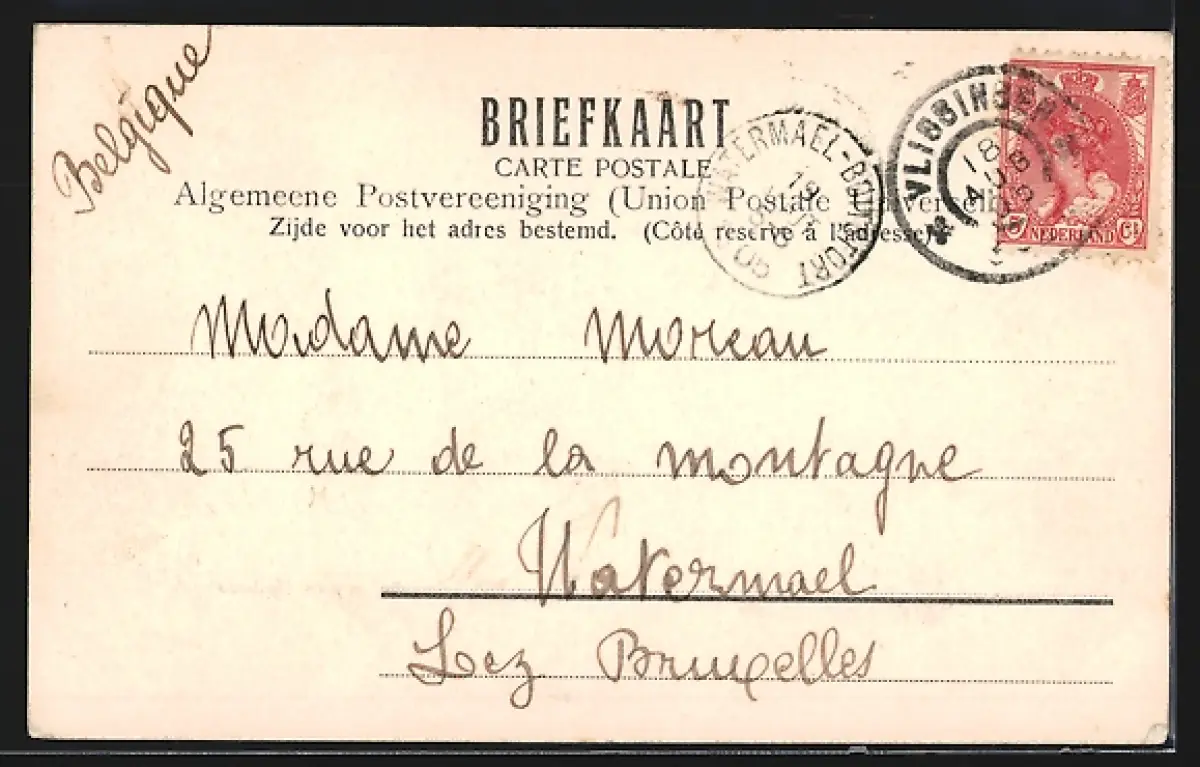 Belgique
BRIEFKAART
CARTE POSTALE
Algemeene Postvereeniging (Union Postale
Zijde voor het adres bestemd. (Côté reservé à l'adresse)
WATERMAEL-BOITSFORT
19
VLISSINGEN
18
5 NEDERLAND Ct
Madame Moreau
25 rue de la montagne
Watermael
Lez Bruxelles